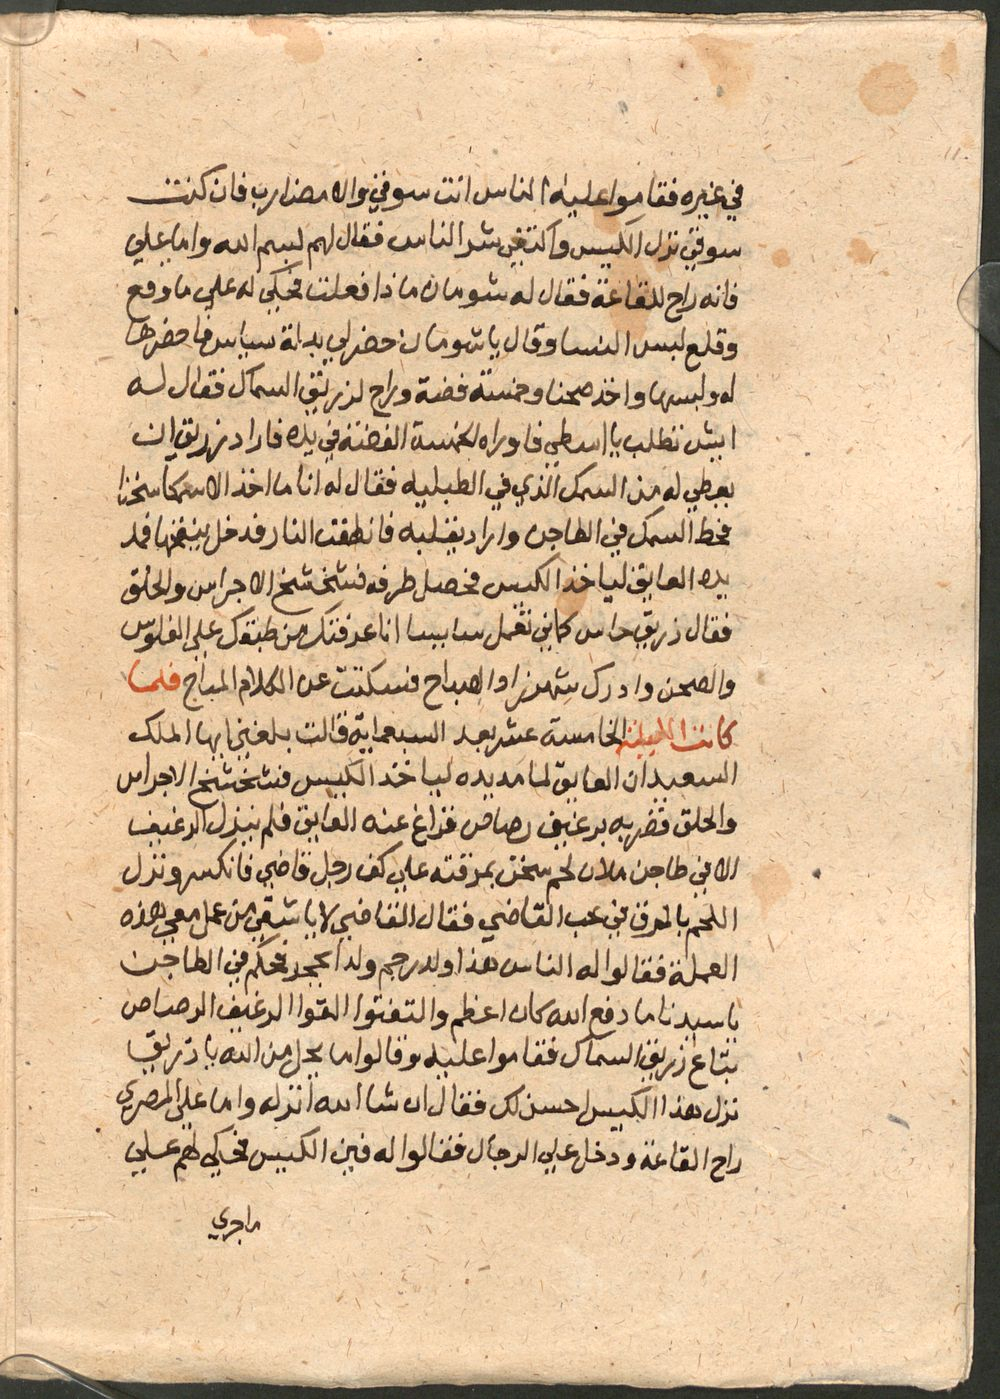 في غيره فقاموا عليه الناس انت سوقي والا مضارب فان كنت
سوقي نزل الكيس واكتفي شر الناس فقال لهم بسم الله واما علي
فانه راح للقاعة فقال له شومان ماذا فعلت فحكي له علي ما وقع
وقلع لبس النسا وقال يا شومان احضر لي بدلة سياس فاحضرها
له ولبسها واخذ صحنا وخمسة فضة وراح لزريق السماك فقال له
ايش تطلب يا اسطي فاوراه الخمسة الفضة في يده فاراد زريق ان
يعطي له من السمك الذي في الطبليه فقال له انا ما اخذ الا سمكا سخنا
فحط السمك في الطاجن واراد يقليه فانطفت النار فدخل ينفخها فمد
يده العايق لياخذ الكيس فحصل طرفه فشخشخ الاجراس والحلق
فقال زريق حواس كاني تعمل سايسا انا عرفتك من طبقتك علي الفلوس
والصحن وادرك شهرزاد الصباح فسكتت عن الكلام المباح فلما
كانت الليلة الخامسة عشر بعد السبعماية قالت بلغني ايها الملك
السعيد ان العايق لما مد يده لياخذ الكيس فشخشخ الاجراس
والحلق فضربه برغيف رصاص فزاغ عنه العايق فلم ينزل الرغيف
الا في طاجن ملان لحم سخن بمرقته علي كف رجل قاضي فانكسر ونزل
اللحم بالمرق في عب القاضي فقال القاضي لا يا شقي من عمل معي هذه
العملة فقالوا له الناس هذا ولد رجم ولدا بحجر فحكم في الطاجن
يا سيدنا ما دفع الله كان اعظم والتفتوا القوا الرغيف الرصاص
بتاع زريق السماك فقاموا عليه وقالوا ما يحل من الله يا زريق
نزل هذا الكيس احسن لك فقال ان شا الله انزله واما علي المصري
راح القاعة ودخل علي الرجال فقالوا له فين الكيس فحكي لهم علي
ما جري